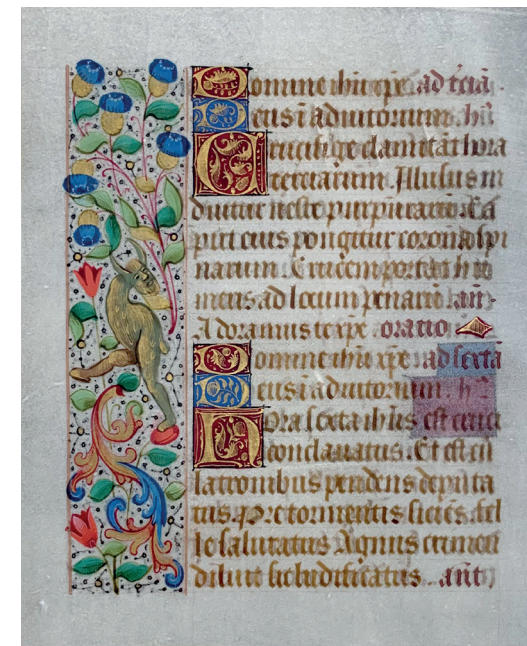 Domine ihu xpe ad tercia.
Deus i adiutorium. 
Crucifige clamitat hora
terciarum. Illusus in
duitur veste purpura
put eius pongitur corona spi
narum. Crucem portat hu
meus ad locum penarum an.
Adoramus te xpe oratio
Domine ihu xpe ad sexta
Deus i adiutorium. 
Hora sexta ihus est cruci
conclauatus. Et est cu
latronibus pendens deputa
tus. Pre tormentis siciens. fel
le saturatus Agnus crimen
diluit sic ludificatus. ant